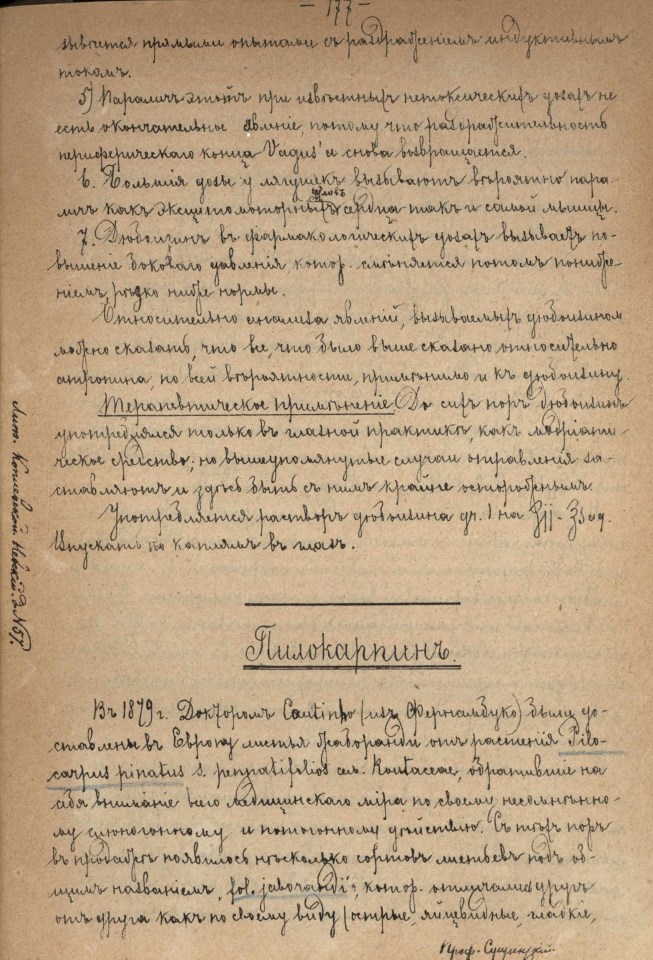 — 177 —
зывается прямыми опытами съ раздраженіемъ индуктивнымъ
токомъ.
5) Параличъ этотъ при извѣстныхъ нетоксическихъ дозахъ не
есть окончательное явленіе, потому что раздражительность
периферическаго конца Vagus'a снова возвращается.
6. Большія дозы у лягушекъ вызываютъ вѣроятно пара-
личъ какъ эксцитомоторныхъ узловъ сердца такъ и самой мышцы.
7. Дюбоизинъ въ фармакологическихъ дозахъ вызываетъ по-
вышеніе боковаго давленія, котор. смѣняется потомъ пониже-
ніемъ, рѣдко ниже нормы.
Относительно анализа явленій, вызываемыхъ дюбоизиномъ
можно сказать, что все, что было выше сказано относительно
атропина, по всей вѣроятности, примѣнимо и къ дюбоизину.
Терапевтическое примѣненіе. До сихъ поръ дюбоизинъ
употреблялся только въ глазной практикѣ, какъ мидріати-
ческое средство; но вышеупомянутые случаи отравленія за-
ставляютъ и здѣсь быть съ нимъ крайне осторожнымъ.
Употребляется растворъ дюбоизина гр. 1 на ℥ij - ℥j aq.
Впускать по каплямъ въ глазъ.
Пилокарпинъ.
Въ 1879 г. Докторомъ Cautinho (изъ Фернамбуко) были до-
ставлены въ Европу листья жаборанди отъ растенія Pilo-
carpus pinatus s. pennatifolios сем. Rontaceae, обратившіе на
себя вниманіе всего медицинскаго міра по своему несомнѣнно-
му слюногонному и потогонному дѣйствію. Съ тѣхъ поръ
въ продажѣ появилось нѣсколько сортовъ листьевъ подъ об-
щимъ названіемъ „fol. jaborandi", котор. отличались другъ
отъ друга какъ по своему виду (острые, яйцевидные, гладкіе,
Проф. Сущинскій.
Лит. Невскій. д. № 57.